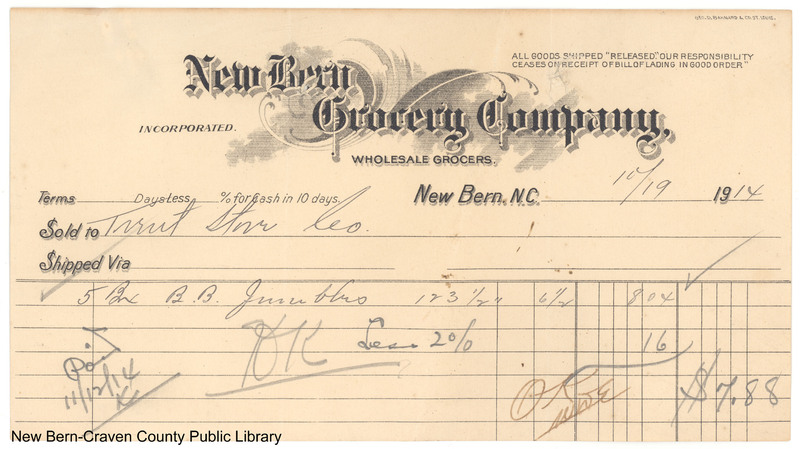 GEO. D. BARNARD & CO. ST. LOUIS.
ALL GOODS SHIPPED "RELEASED". OUR RESPONSIBILITY
CEASES ON RECEIPT OF BILL OF LADING IN GOOD ORDER"
New Bern
Grocery Company,
INCORPORATED.
WHOLESALE GROCERS.
Terms Days Less % for Cash in 10 days.
New Bern, N.C. 10/19 1914
Sold to Trent Store Co.
Shipped Via
5 Bx B.B. Jumbles 123 1/2" 6 1/2 8 04
OK Less 2% 16
Paid
11/12/14
OK
$7.88
New Bern-Craven County Public Library